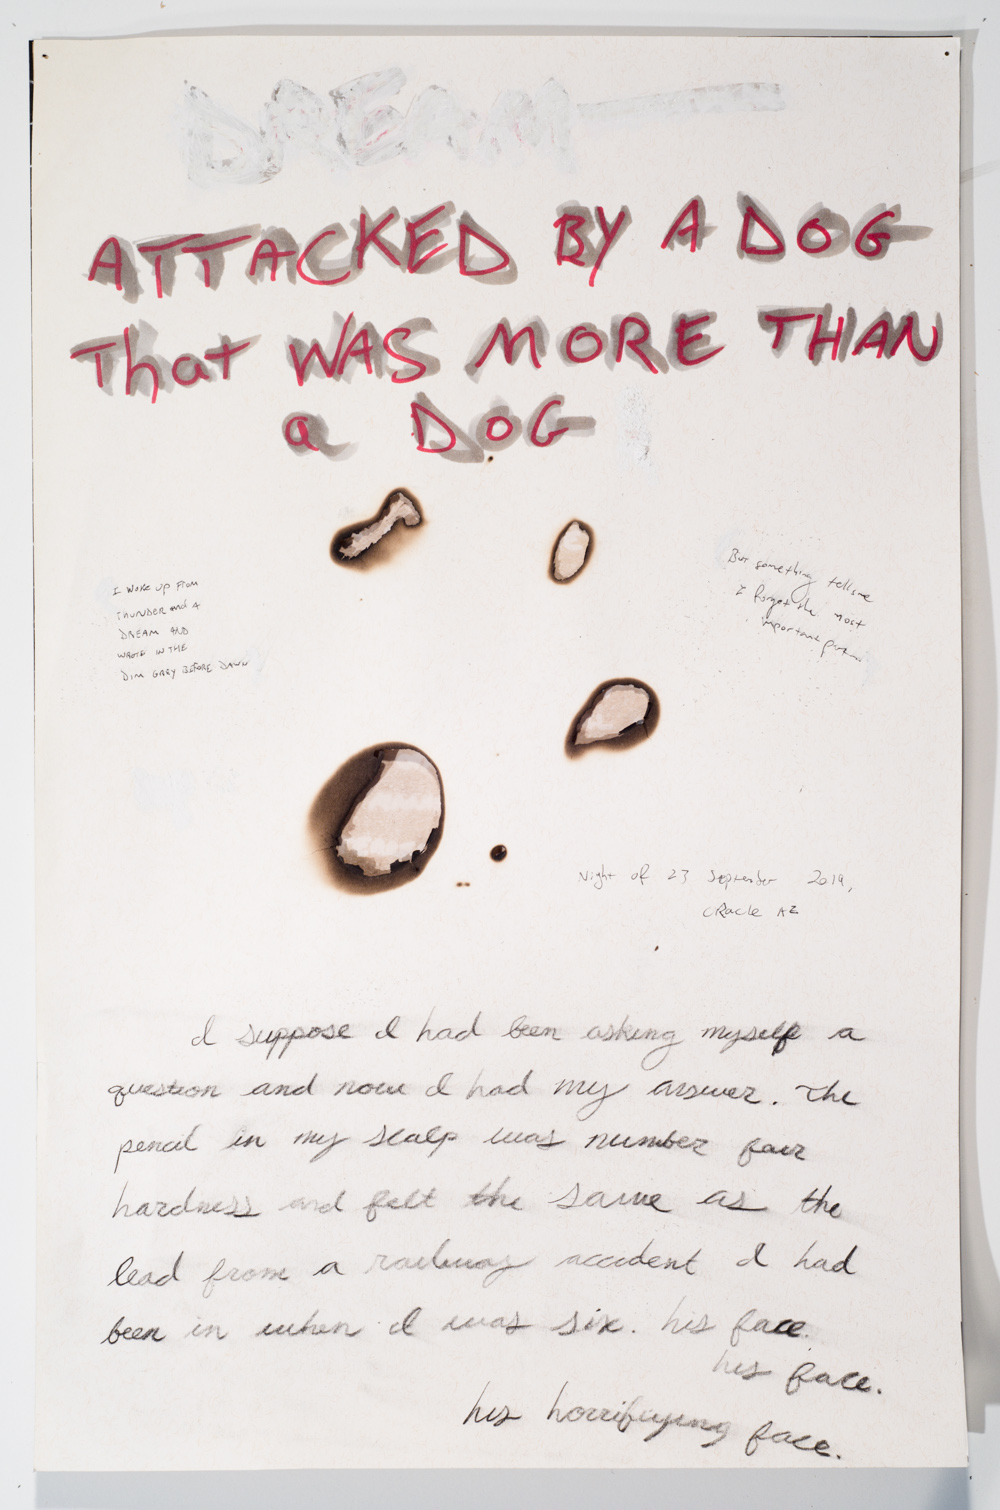 ATTACKED BY A DOG
That WAS MORE THAN
a DOG
I WOKE UP FROM
THUNDER and A
DREAM AND
WROTE IN THE
DIM GREY BEFORE DAWN
But something tells me
I forget the most
important part
Night of 23 September 2019,
ORacle AZ
I suppose I had been asking myself a
question and now I had my answer. The
pencil in my scalp was number four
hardness and felt the same as the
lead from a railway accident I had
been in when I was six. his face.
his face.
his horrifying face.